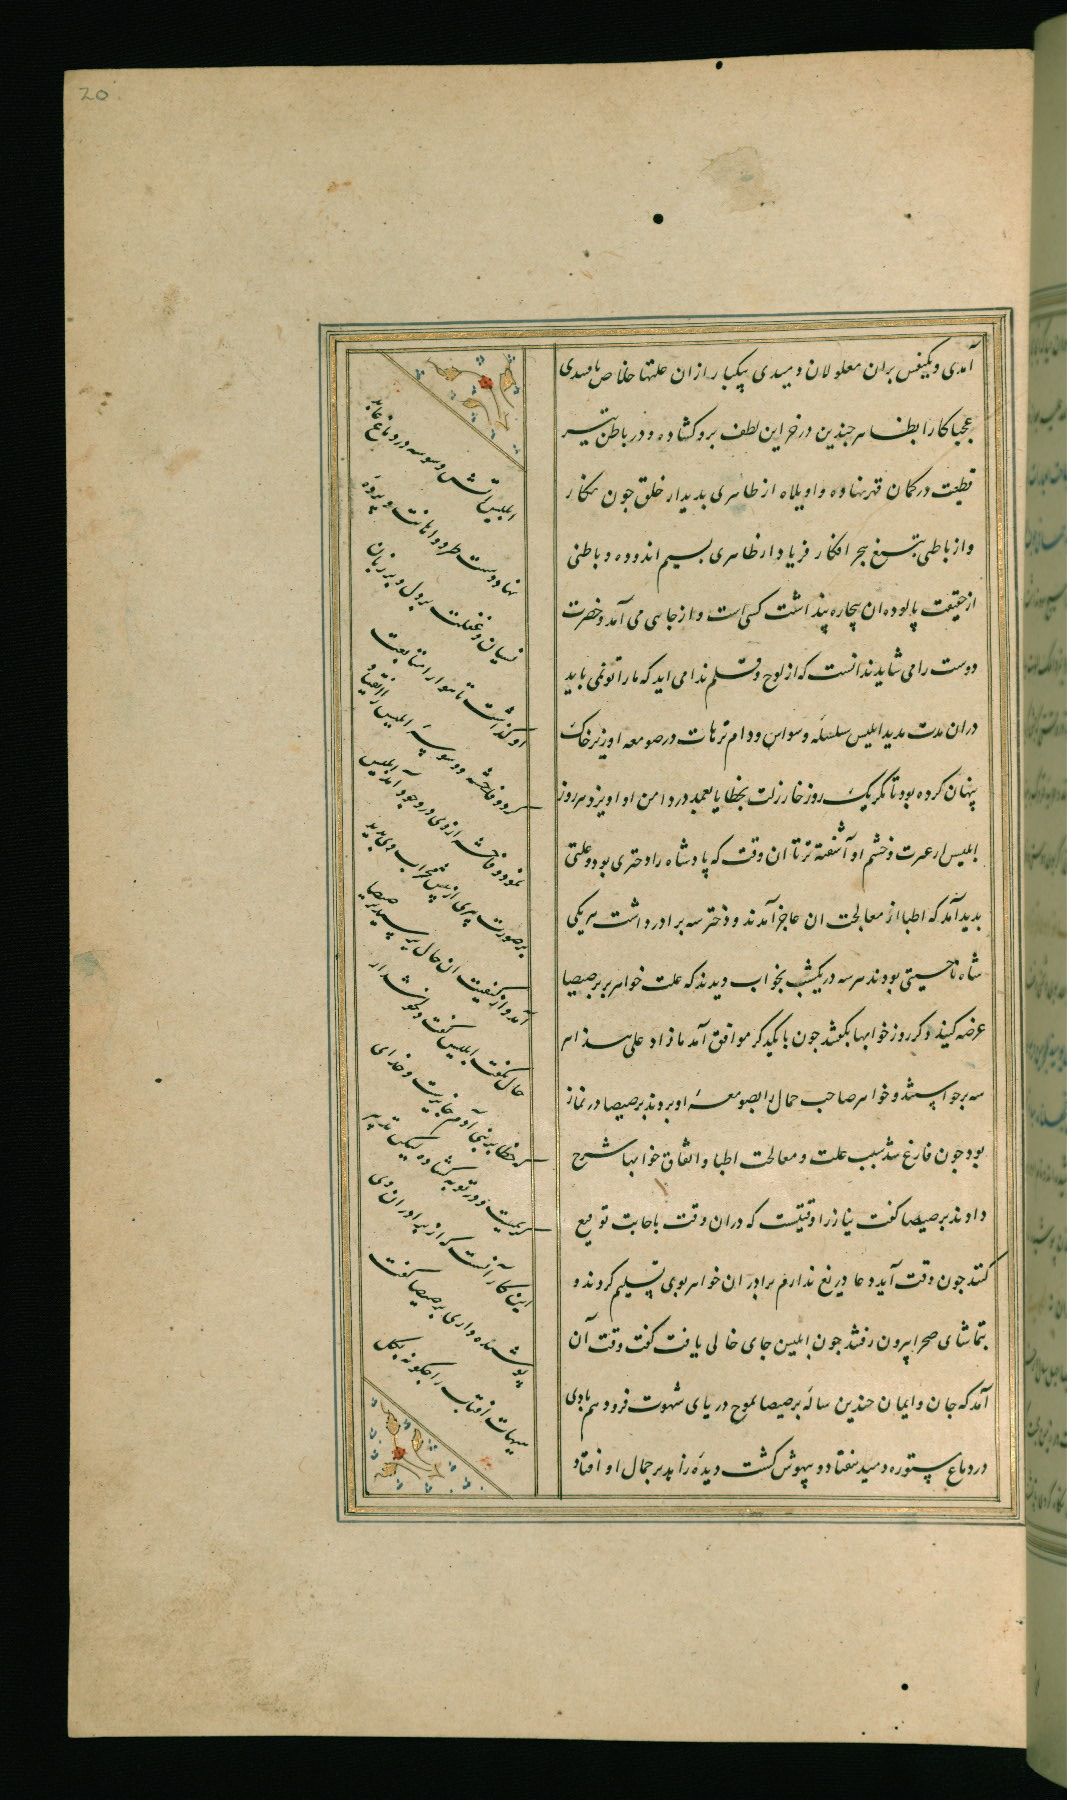 20
آمدی و یکنفس بران معلولان دمیدی بیکبار ازان علتها خلاص یافتندی
عجبا کارا بظاهر چندین در خزاین لطف برو کشاده و در باطن تیر
قطعیت در کمان قهر نهاده واویلاه از ظاهری بدیدار خلق چون نکار
و از باطنی بتیغ هجر افکار فریاد از ظاهری بسیم اندوده و باطنی
از حقیقت پالوده ان بیچاره پنداشت کسی است و از جایی می آمد و حضرت
دوست را می شاید ندانست که از لوح و قلم ندا می اید که ما را تو نمی باید
دران مدت مدید ابلیس سلسله وسواس و دام ترهات در صومعه او زیر خاک
پنهان کرده بود تا مکر یک روز خار زلت بخطا یا بعمد در دامن او اویزد هر روز
ابلیس از عبرت و خشم او آشفته تر تا ان وقت که پادشاه را دختری بود و علتی
بدید آمد که اطبا از معالجت ان عاجز آمدند و دختر سه برادر داشت هر یکی
شاه ناحیتی بودند هر سه در یکشب بخواب دیدند که علت خواهر بر برصیصا
عرضه کنید دکر روز خوابها بکفتند چون با یکدیکر موافق آمد ما زاد علی هذا هر
سه برخواستند و خواهر صاحب جمال را بصومعه او بردند برصیصا در نماز
بود چون فارغ شد سبب علت و معالجت اطبا و اتفاق خوابها شرح
دادند برصیصا کفت نیاز را وقتیست که دران وقت باجابت توقیع
کنند چون وقت آید دعا دریغ ندارم برادران خواهر بوی تسلیم کردند و
بتماشای صحرا بیرون رفتند چون ابلیس جای خالی یافت کفت وقت آن
آمد که جان و ایمان چندین ساله برصیصا بموج دریای شهوت فرو دهم بادی
در دماغ مستوره دمید بیفتاد و بیهوش کشت دیده زاهد بر جمال او افتاد
ابلیس آتش وسوسه در دماغ عابد
نهاد دست طرد و اهانت و پرده
نسیان و غفلت بر دل و بر زبان
او کذاشت تا هوا را متابعت
کرد و فاحشه و وسوسه ابلیس را انقیاد
نمود و فاحشه از وی در وجود آمد ابلیس
بر صورت پیری از پیش محراب وی پدید
آمد و از کیفیت ان حال پرسید برصیصا
حال بکفت ابلیس کفت دل خوشدار
که خطا بر بنی آدم جایزست و خدای
کریمست و در توبه کشاده لیکن تدبیر
این کار آنست که از برادران وی
پوشیده داری برصیصا کفت
هیهات افتاب را چکونه بکل